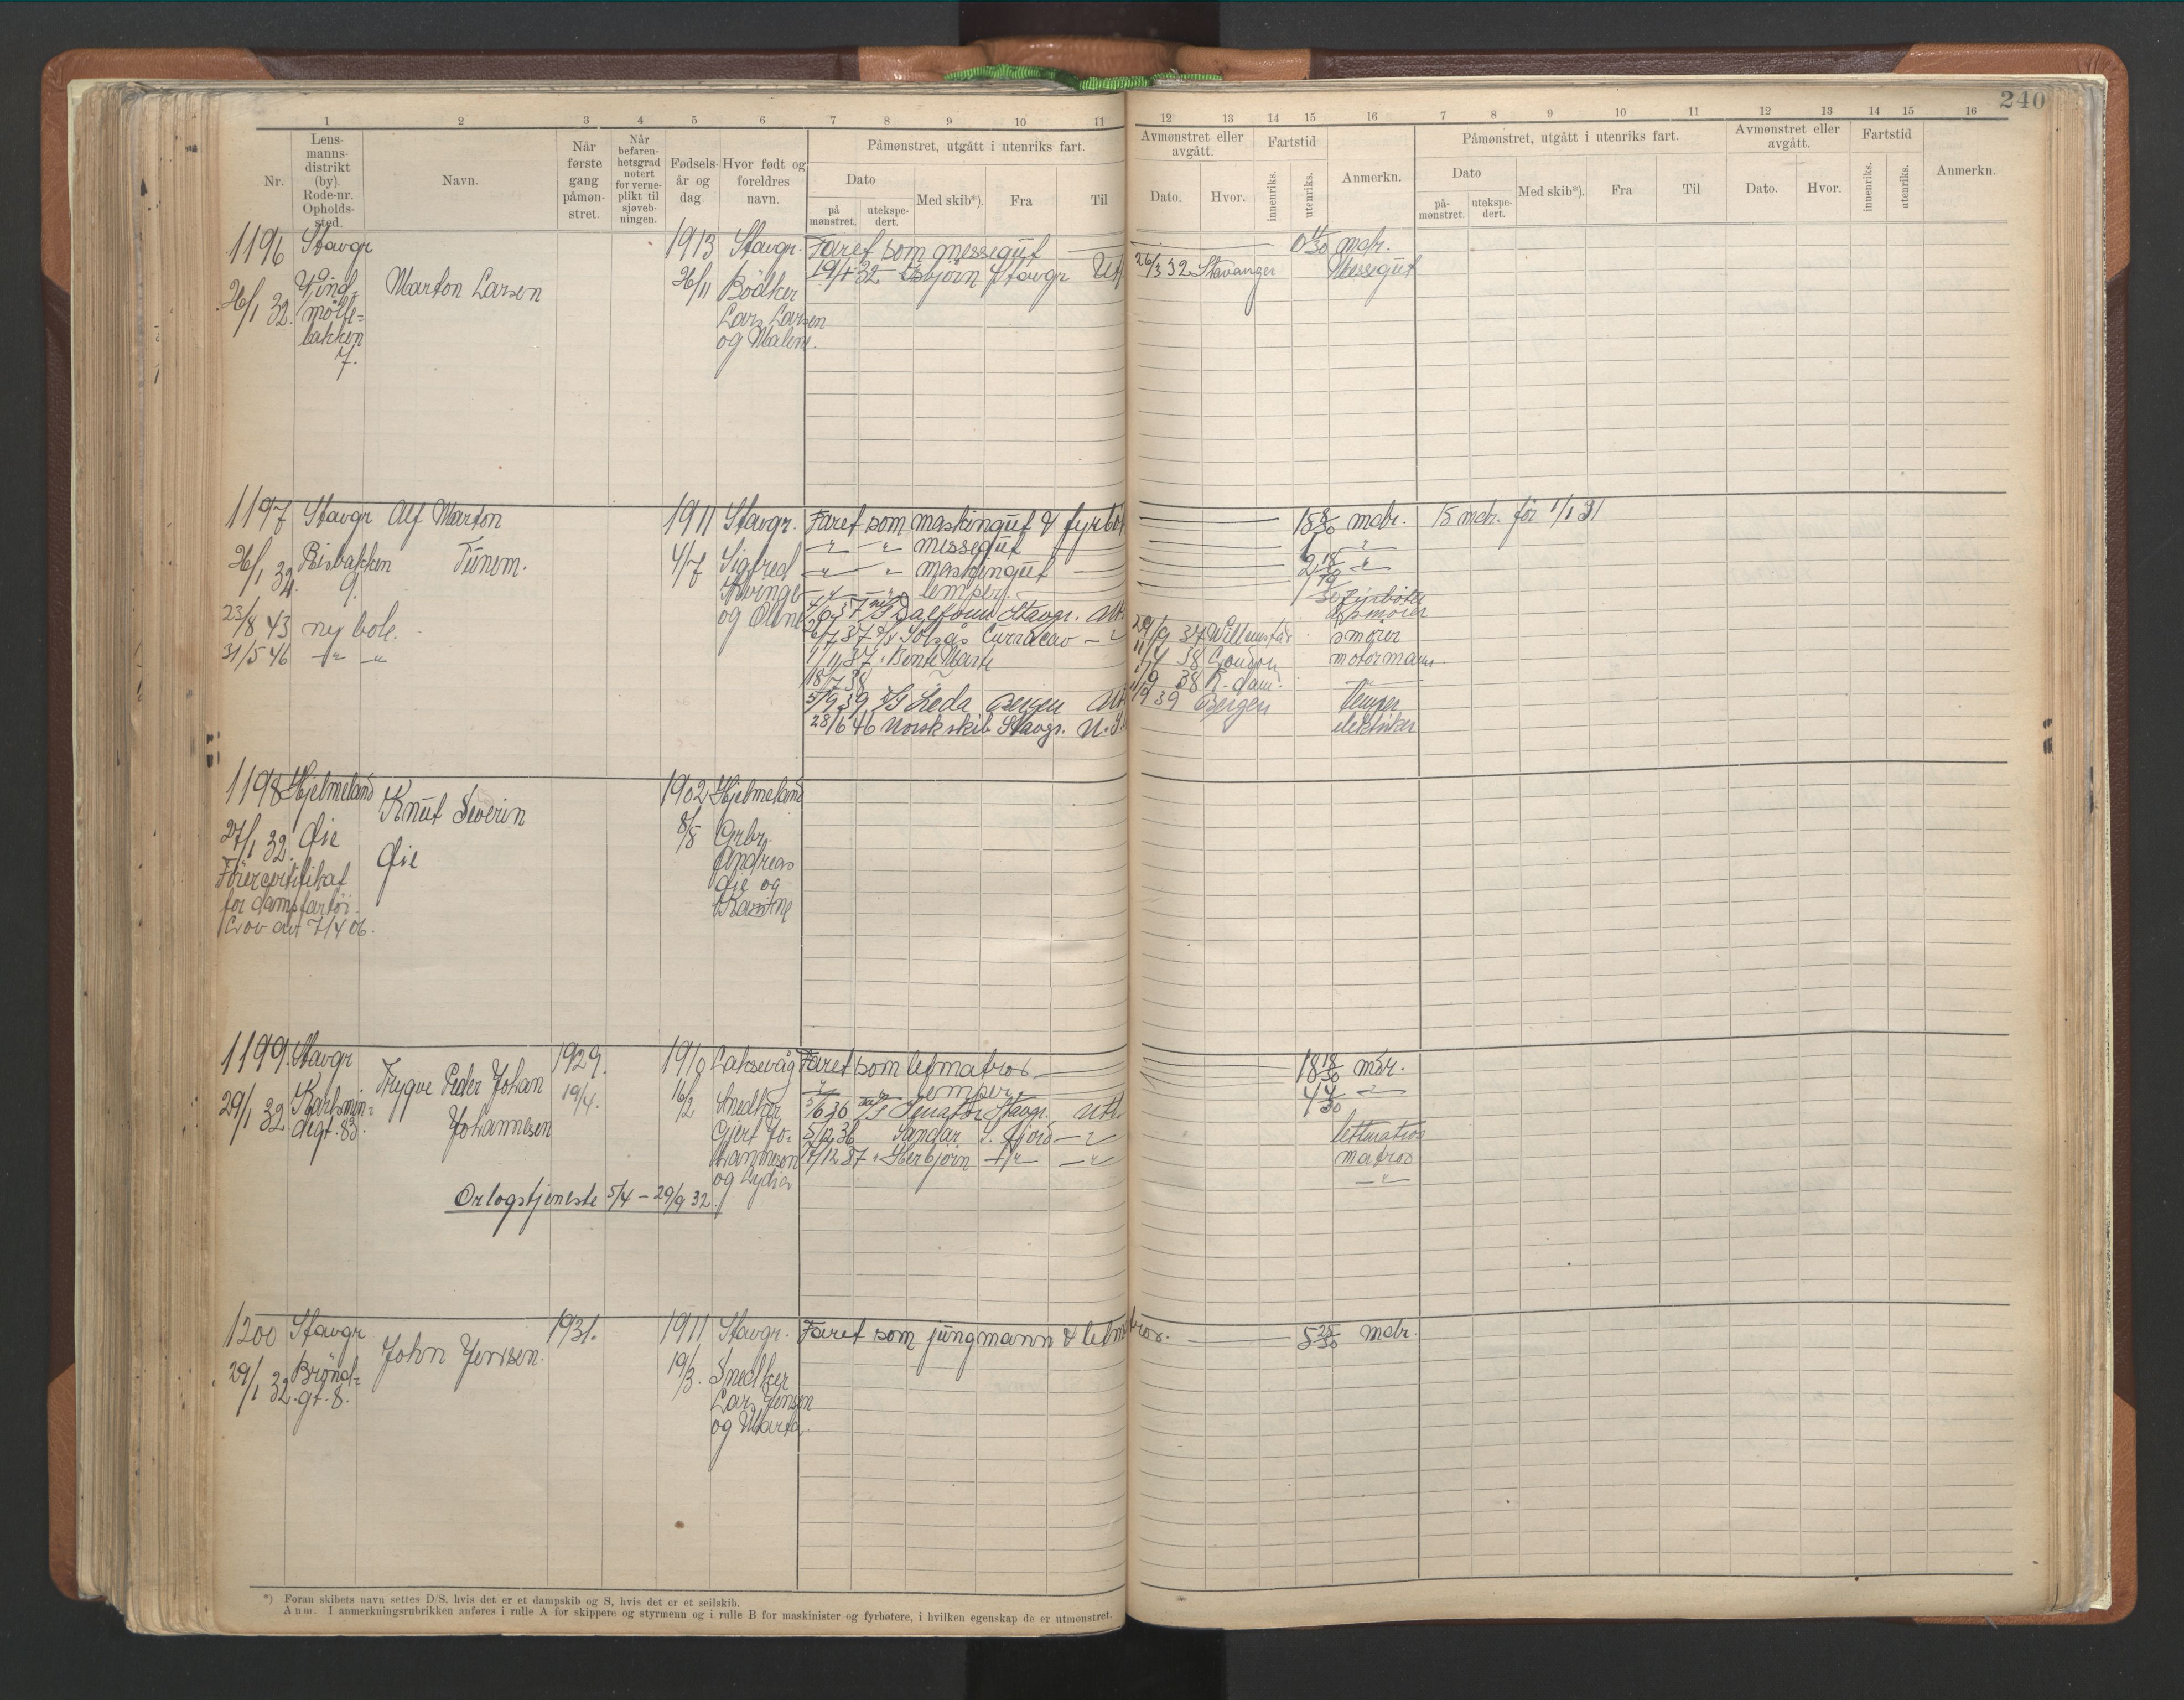 240
1 2 3 4 5 6 7 8 9 10 11 12 13 14 15 16 7 8 9 10 11 12 13 14 15 16
Nr.
Lens-
manns-
distrikt
(by).
Rode-nr.
Opholds-
sted.
Navn.
Når
første
gang
påmøn-
stret.
Når
befaren-
hetsgrad
notert
for verne-
plikt til
sjøveb-
ningen.
Fødsels-
år og
dag
Hvor født og
foreldres
navn.
Påmønstret, utgått i utenriks fart.
Dato
på
mønstret.
utekspe-
dert.
Med skib*).
Fra
Til
Avmønstret eller
avgått.
Dato.
Hvor.
Fartstid
innenriks.
utenriks.
Anmerkn.
Påmønstret, utgått i utenriks fart.
Dato
på-
mønstret.
utekspe-
dert.
Med skib*).
Fra
Til
Avmønstret eller
avgått.
Dato.
Hvor.
Fartstid
innenriks.
utenriks.
Anmerkn.
1196 Stavgr 1913 Stavgr. Faret som messegut 0 11/30 mdr.
26/1 32. Vind- Marton Larsen 26/11 Bødker 19/1 32 Esbjørn Stavgr Utl. 26/3 32 Stavanger Messegut
mølle- Lars Larsen
bakken og Malene.
7.
1197 Stavgr Alf Marton 1911 Stavgr. Faret som maskingut & fyrbøt 15 8/30 mdr. 15 mdr. før 1/1 31
" " messegut 1 "
26/1 32. Risbakken Tunem. 4/7 Sigfred " " maskingut 2 18/30 "
9. Kvinge " " lemper.
og Oline
23/8 43 ny bok. 37 Stavgr. Utl. smører
31/5 46 " " 37 Solaas Curracao " 29/9 37 Willemstad smører
1/11 37 " Bente Marie 11/4 38 London motormann
18/7 38 38 R.dam. "
5/9 39 D/S Leda Bergen Utl. 39 Bergen lemper
28/6 46 Norsk skib Stavgr. U.S. elektriker
1198 Hjelmeland Knut Severin 1902 Hjelmeland
27/1 32. Øie Øie 8/8 Grbr.
Førercertifikat Andreas
for dampfartøi Øie og
Lov av 7/4 06.
1199. Stavgr Trygve Peder Johan 1929. 1910 Laksevåg Faret som letmatros 18 18/30 mdr.
" lemper 4 4/30 "
29/1 32 Karlsmin- Johannesen 19/4. 16/2 Snedker 5/6 36 D/S Senator Stavgr. Utl. lettmatros
degt. 83. Gjert Jo- 5/12 36 Sandar S. fjord " matros
hannesen 17/12 37 " Herbjørn " " "
og Lydia
Orlogstjeneste 5/4 – 29/9 32.
1200 Stavgr John Jensen. 1931. 1911 Stavgr. Faret som jungmann & letmatros. 5 25/30 mdr.
29/1 32. Brønd- 19/3. Snedker
gt. 8. Lars Jensen
og Marta.
*) Foran skibets navn settes D/S, hvis det er et dampskib og S, hvis det er et seilskib.
Anm. I anmerkningsrubrikken anføres i rulle A for skippere og styrmenn og i rulle B for maskinister og fyrbøtere, i hvilken egenskap de er utmønstret.